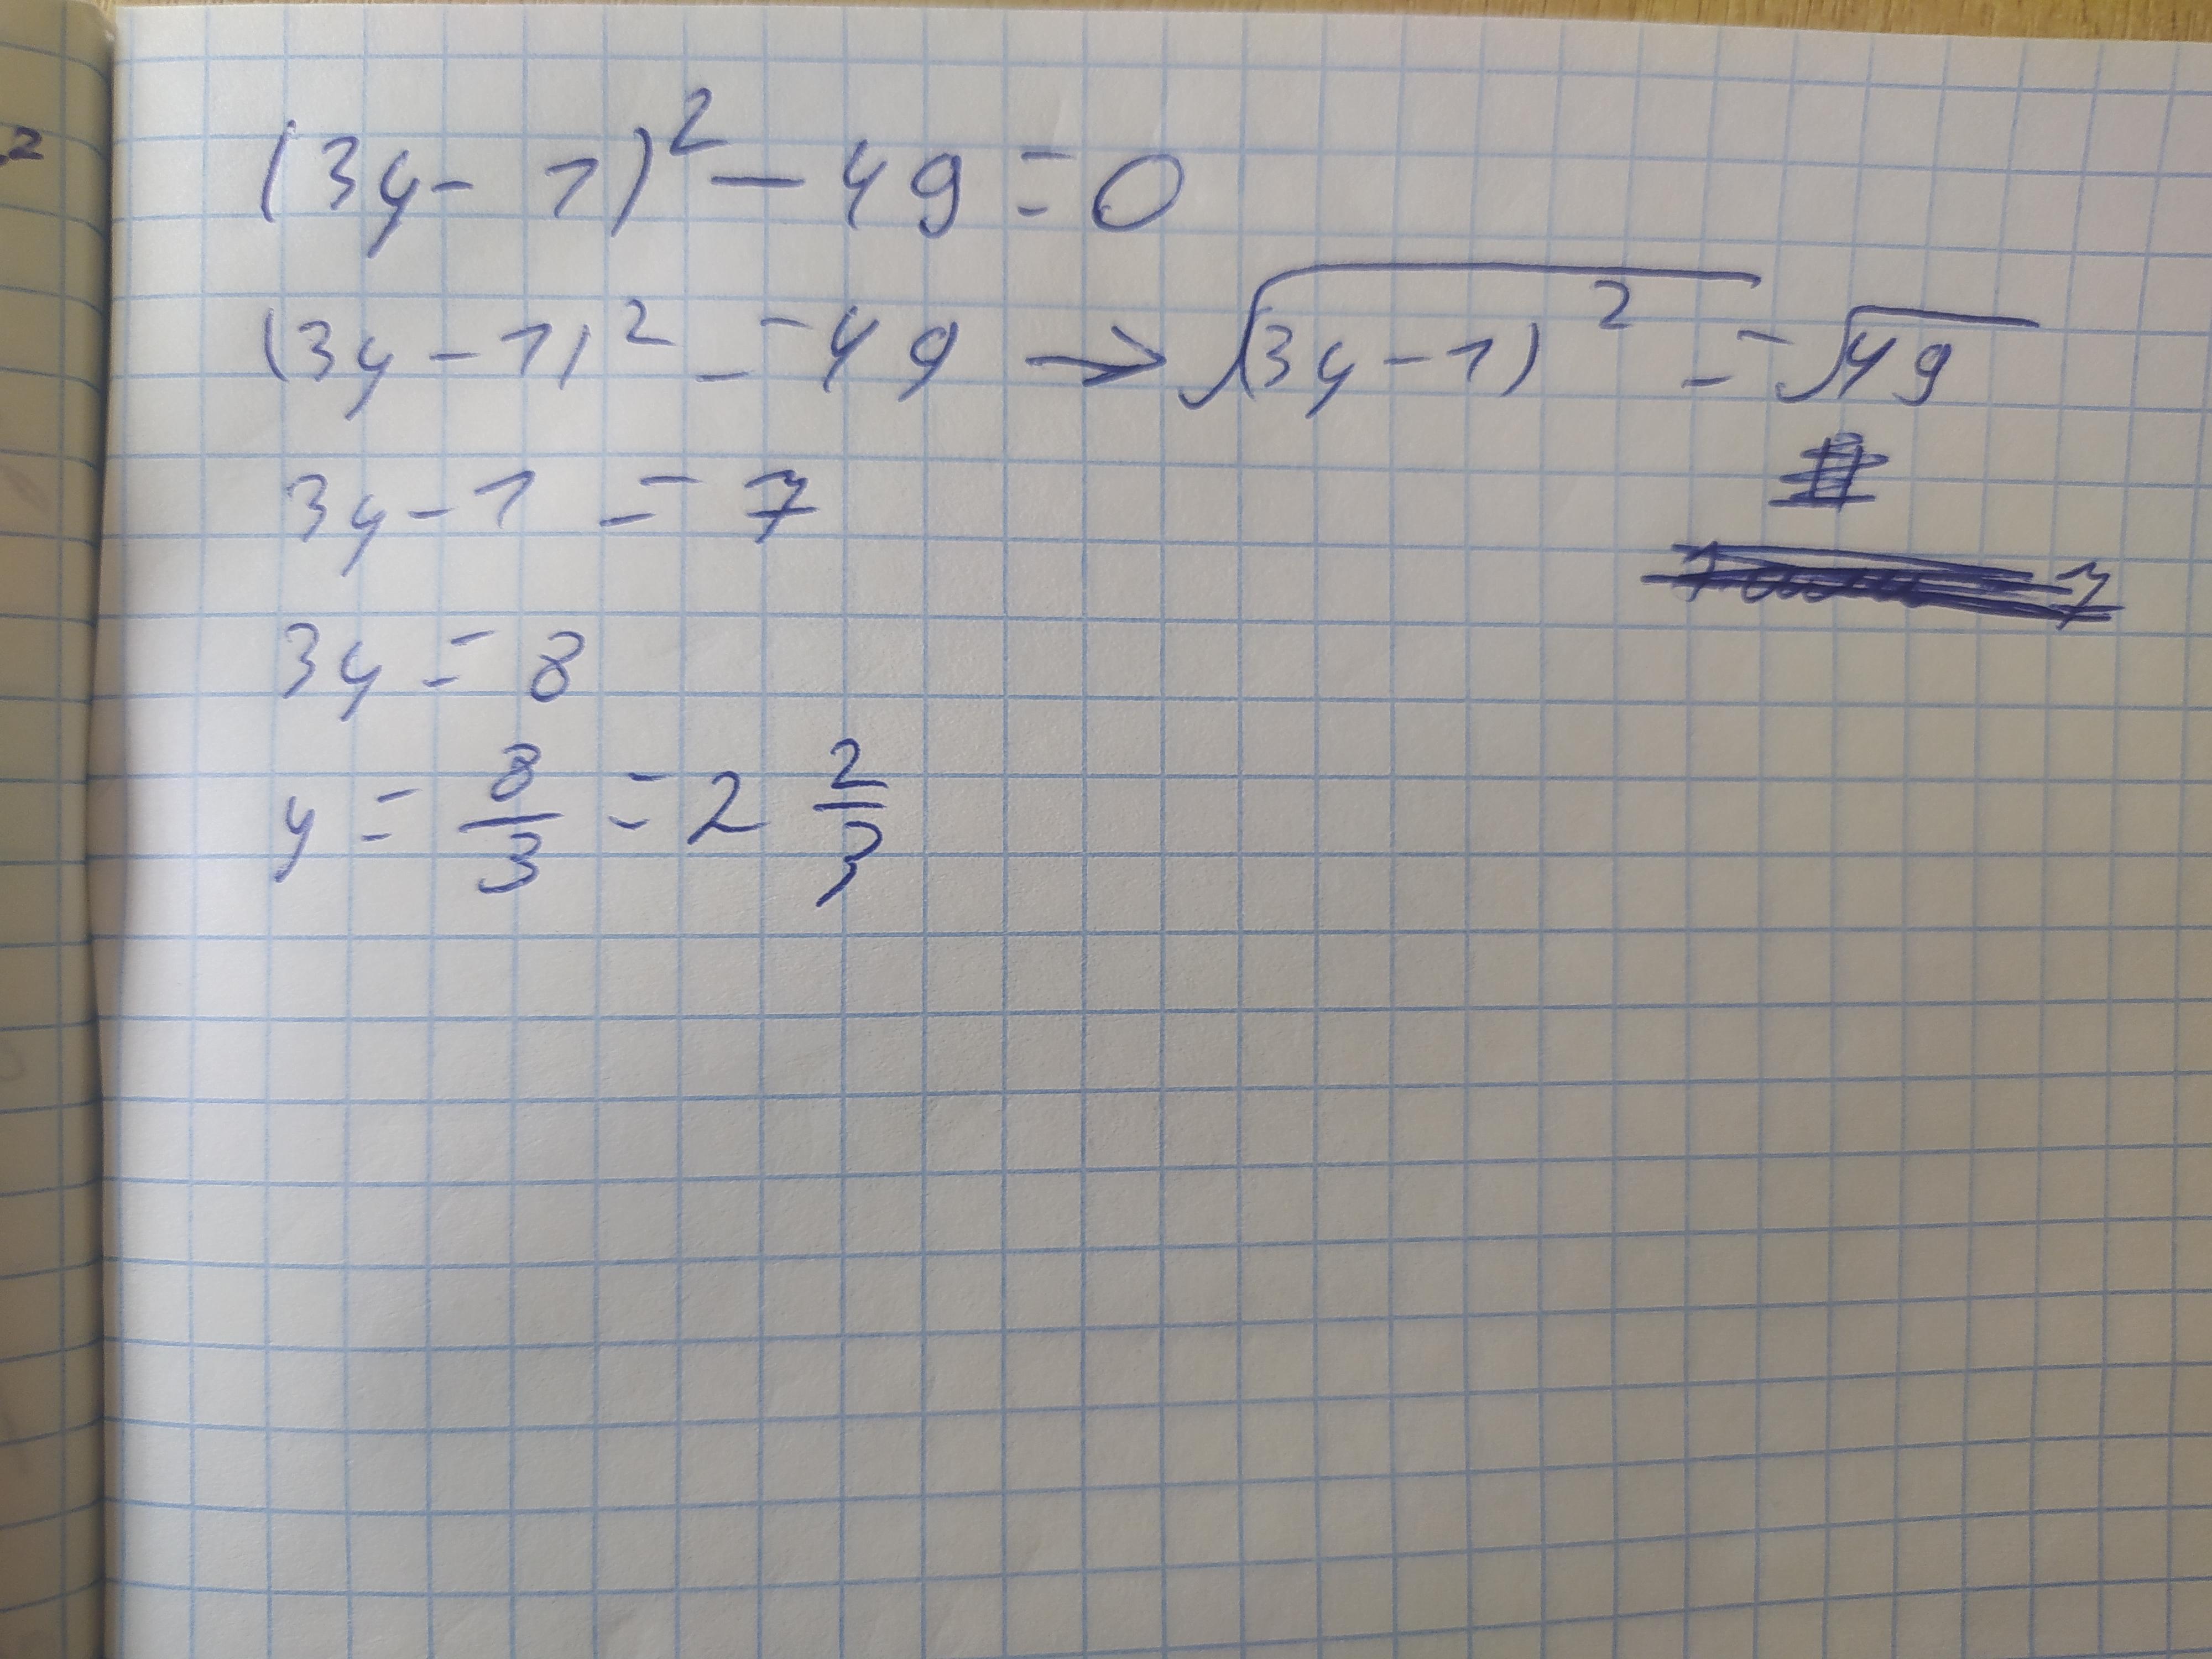 2
(3y - 1)² - 49 = 0
(3y - 1)² = 49 → √(3y - 1)² = √49
3y - 1 = 7
3y = 8
y = 8/3 = 2 2/3